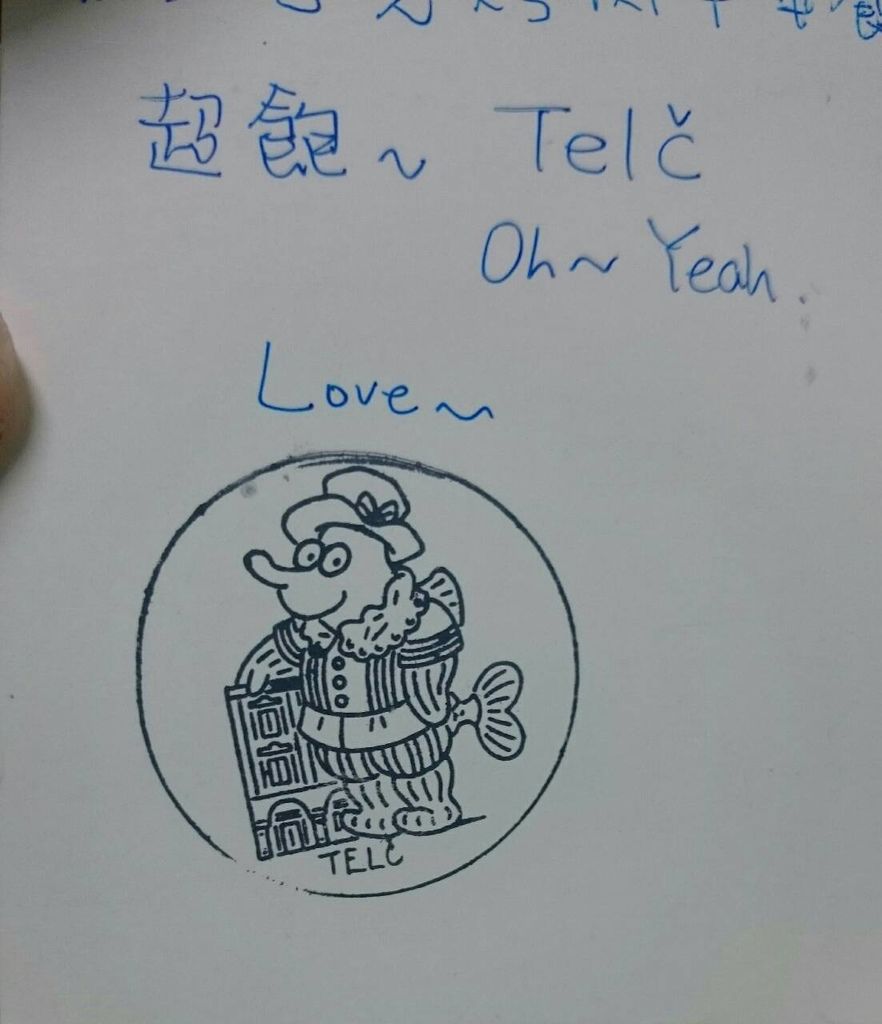 超飽~ Telč
Oh~ Yeah.
Love~
TELČ